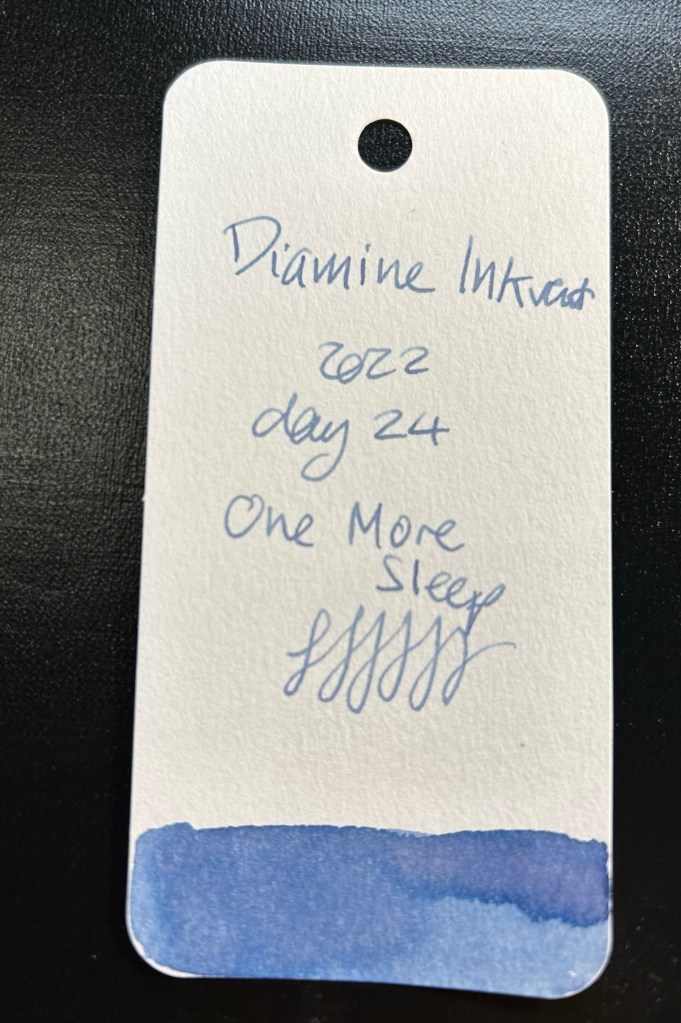 Diamine Inkvent
2022
day 24
One More
Sleep